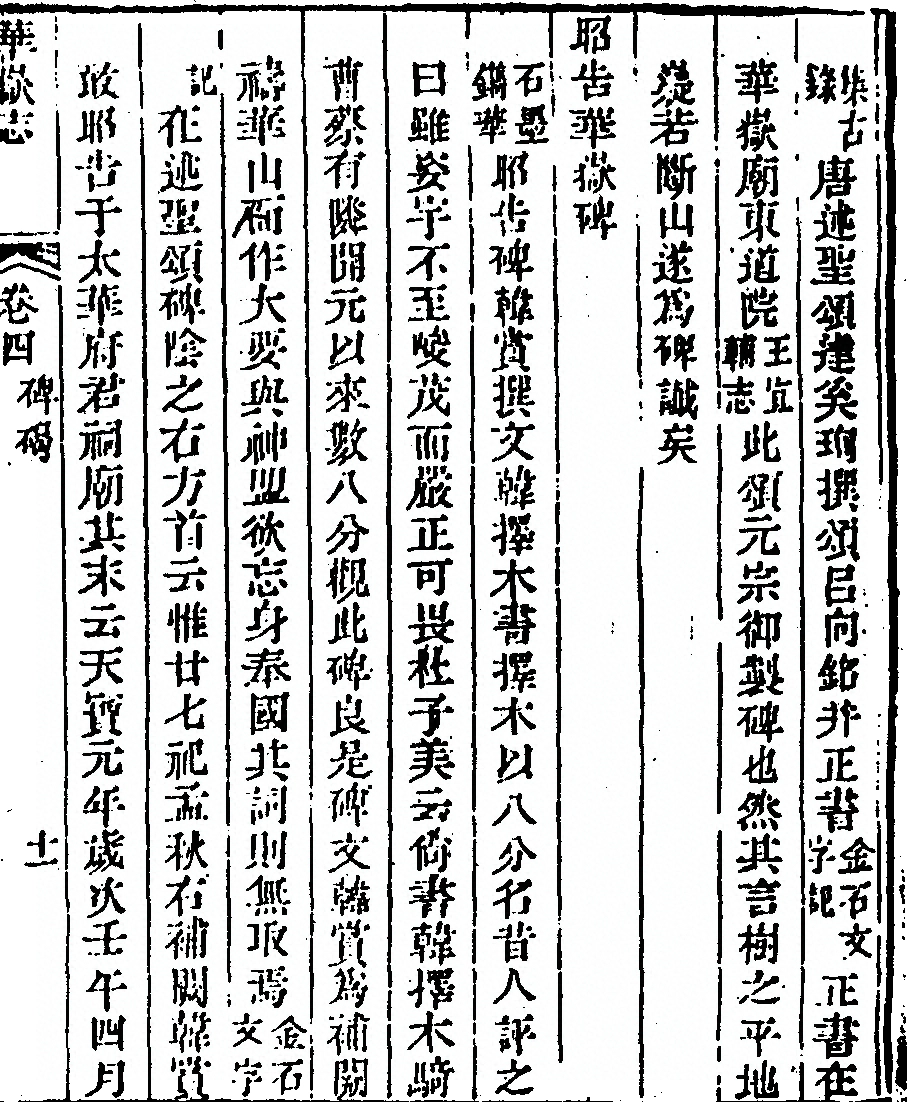 集古錄唐述聖頌達奚珣撰頌呂向銘幷正書金石文字記正書在
華嶽廟東道院王宜輔志此頌元宗御製碑也然其言樹之平地
若斷山遂爲碑誠矣
昭告華嶽碑
石墨鐫華昭告碑韓賞撰文韓擇木書擇木以八分名昔人評之
曰雖姿字不至峻茂而嚴正可畏杜子美云尙書韓擇木騎
曹蔡有隣開元以來數八分觀此碑良是碑文韓賞爲補闕
禱華山而作大要與神盟欲忘身奉國其詞則無取焉金石文字
記在述聖頌碑陰之右方首云惟廿七祀孟秋右補闕韓賞
敢昭告于太華府君祠廟其末云天寶元年歲次壬午四月
華嶽志
卷四
碑碣
十一